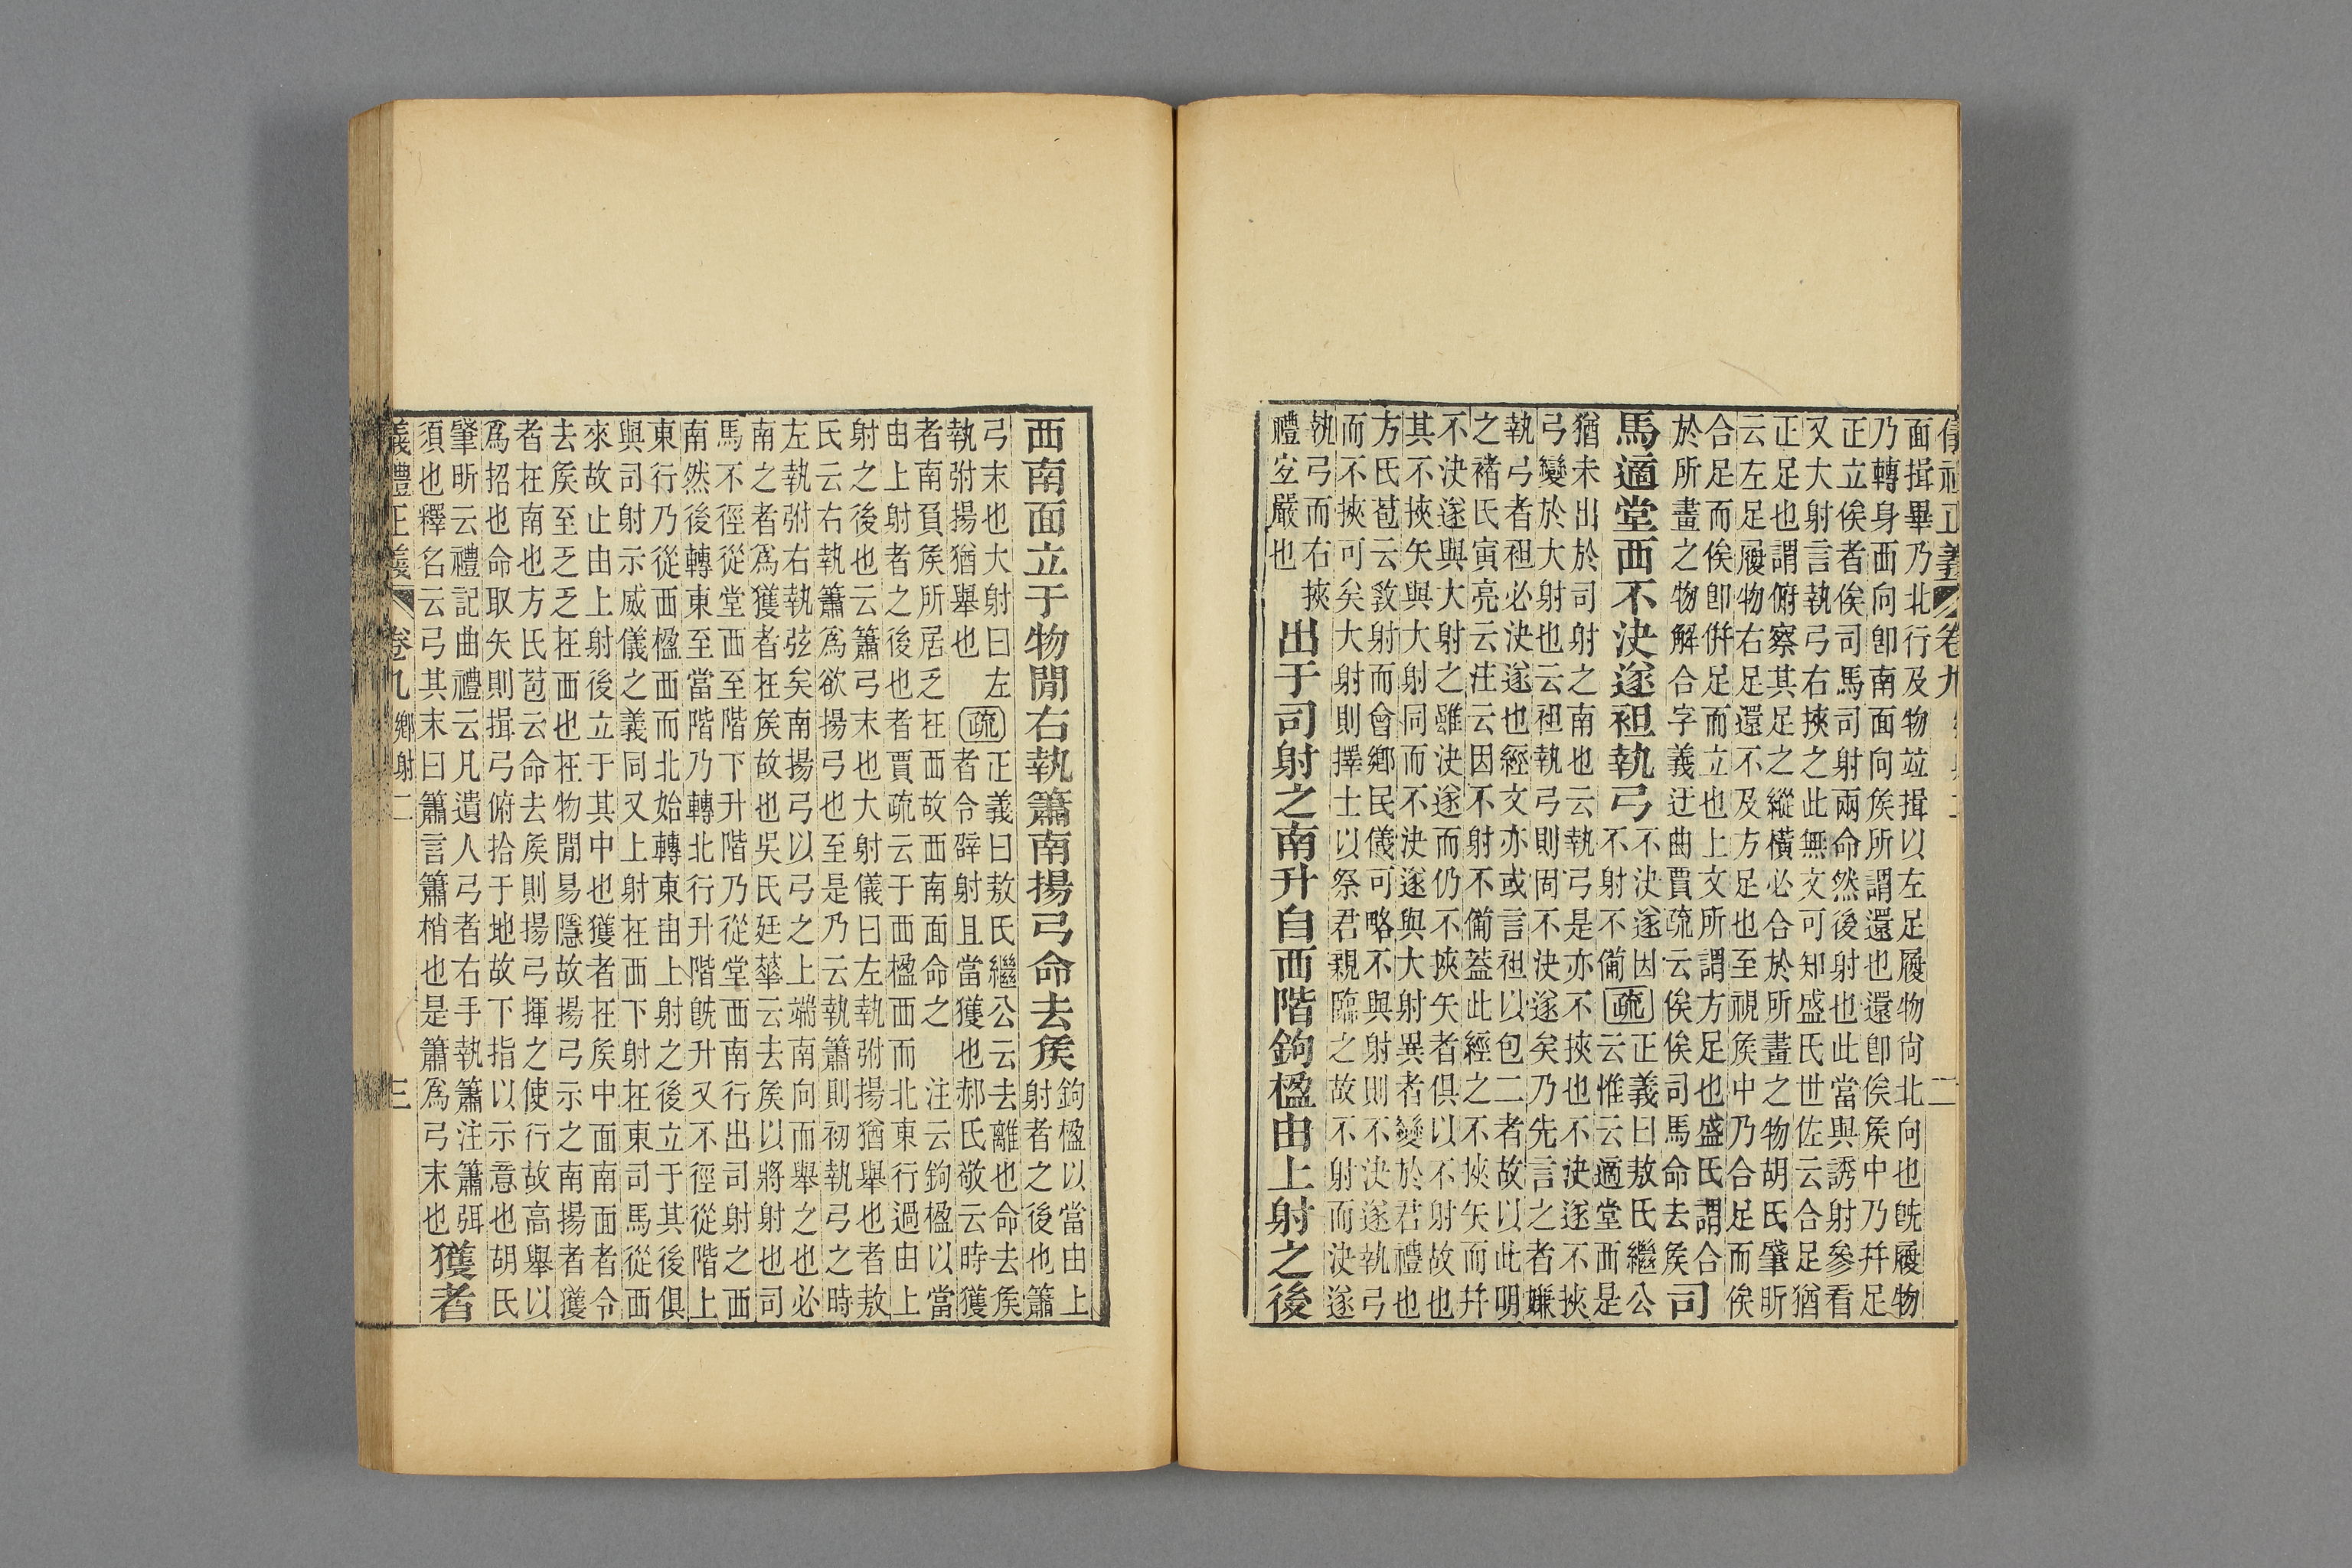 面揖畢乃北行及物竝揖以左足履物尙北向也旣履物
乃轉身西向卽南面向矦所謂還也還卽俟矦中乃幷足
正立俟者俟司馬司射兩命然後射也此當與誘射參看
又大射言執弓右挾之此無文可知盛氏世佐云合足猶
正足也謂俯察其足之縱橫必合於所畫之物胡氏肇昕
云左足履物右足還不及方足也至視矦中乃合足而俟
合足而俟卽併足而立也上文所謂方足也盛氏謂合
於所畫之物解合字義迂曲賈疏云俟俟司馬命去矦 司
馬適堂西不決遂袒執弓
不決遂因
不射不備
疏 正義曰敖氏繼公
云惟云適堂西是
猶未出於司射之南也云執弓是亦不挾也不決遂不挾
弓變於大射也云袒執弓則固不決遂矣乃先言之者嫌
執弓者袒必決遂也經文亦或言袒以包二者故以此明
之褚氏寅亮云注云因不射不備蓋此經之不挾矢而幷
不決遂與大射之雖決遂而仍不挾矢者俱以不射故也
其不挾矢與大射同而不決遂與大射異者變於君禮也
方氏苞云敎射而會鄉民儀可略不與射則不決遂執弓
而不挾可矣大射則擇士以祭君親臨之故不射而決遂
執弓而右挾
禮宐嚴也
出于司射之南升自西階鉤楹由上射之後
西南面立于物閒右執簫南揚弓命去矦
鉤楹以當由上
射者之後也簫
弓末也大射曰左
執弣揚猶舉也
疏 正義曰敖氏繼公云去離也命去矦
者令辟射且當獲也郝氏敬云時獲
者南負矦所居乏在西故西南面命之 注云鉤楹以當
由上射者之後也者賈疏云于西楹西而北東行過由上
射之後也云簫弓末也大射儀曰左執弣揚猶舉也者敖
氏云右執簫爲欲揚弓也至是乃云執簫則初執弓之時
左執弣右執弦矣南揚弓以弓之上端南向而舉之也必
南之者爲獲者在矦故也吳氏廷華云去矦以將射也司
馬不徑從堂西至階下升階乃從堂西南行出司射之西
南然後轉東至當階乃轉北行升階旣升又不徑從階上
東行乃從西楹西而北始轉東由上射之後立于其後俱
與司射示威儀之義同又上射在西下射在東司馬從西
來故止由上射後立于其中也獲者在矦中面南面者令
去矦至乏乏在西也在物閒易隱故揚弓示之南揚者獲
者在南也方氏苞云命去矦則揚弓揮之使行故高舉以
爲招也命取矢則揖弓俯拾于地故下指以示意也胡氏
肇昕云禮記曲禮云凡遺人弓者右手執簫注簫弭
須也釋名云弓其末曰簫言簫梢也是簫爲弓末也 獲者
儀禮正義 卷九 鄉射二 三